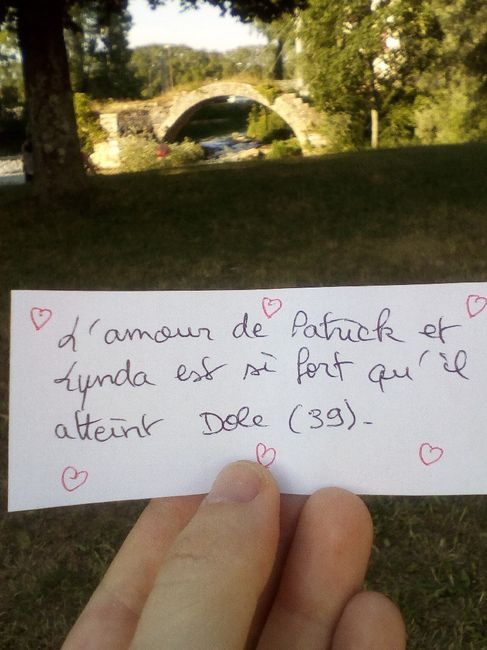 L'amour de Patrick et
Lynda est si fort qu'il
atteint Dole (39).